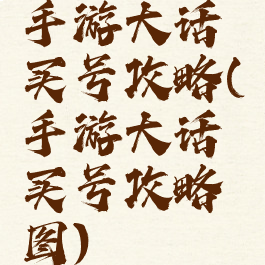 手游大话
买号攻略(
手游大话
买号攻略
图)